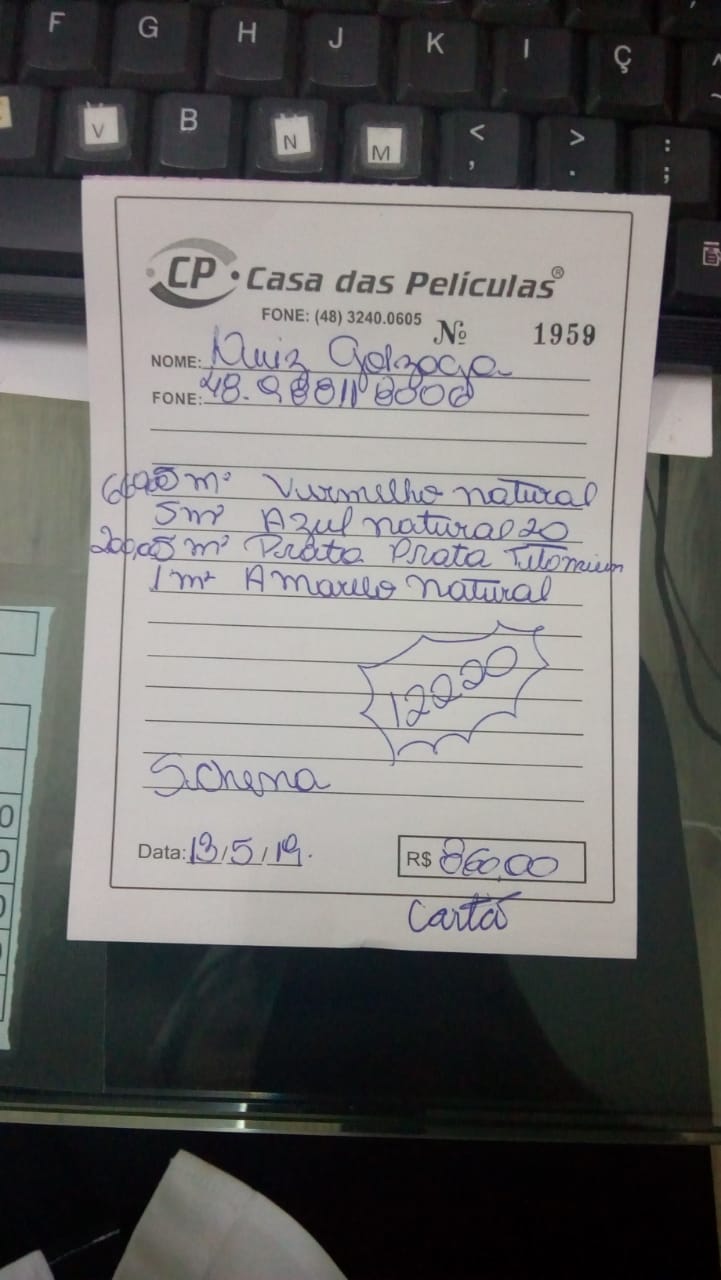 F G H J K L Ç
V B N M < , > . : ;
CP Casa das Películas®
FONE: (48) 3240.0605
Nº 1959
NOME: Luiz Gonzaga
FONE: 48.
5 m² Vurmelho natural
5 m² Azul natural 20
200,00 5 m² Prata Prata Titomium
1 m² Amarelo natural
12220
Data: 13/5/19.
R$ 860,00
Cartão